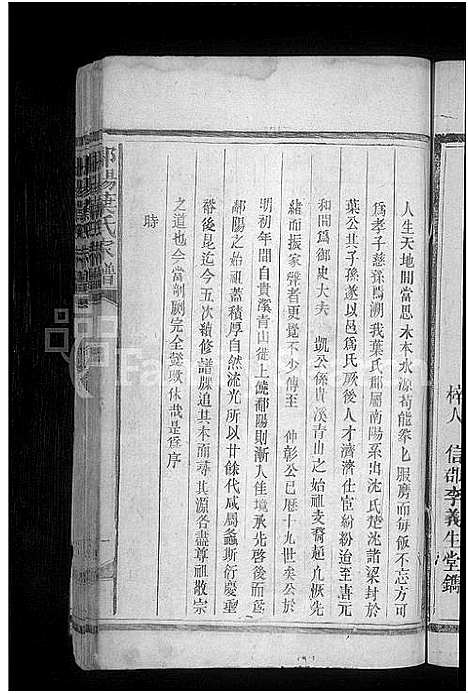 梓人 信邵李義生堂鐫
人生天地間當思木本水源苟能拳拳服膺而每飯不忘方可
爲孝子慈孫溯我葉氏郡屬南陽系出沈氏楚沈諸梁封於
葉公其子孫遂以邑爲氏厥後人才濟濟仕宦紛紛迨至唐元
和間爲御史大夫 凱公係貴溪青山之始祖支裔超凡恢先
緒而振家聲者更覺不少傳至 仲彰公已歷十九世矣公於
明初年間自貴溪青山徙上饒鄱陽則漸入佳境承先啓後而爲
鄱陽之始祖蓋積厚自然流光所以廿餘代咸周螽斯衍慶垂
裕後昆迄今五次續修譜牒追其本而尋其源各盡尊祖敬宗
之道也今當剞劂完全發厥休哉是爲序
時
鄱陽葉氏宗譜